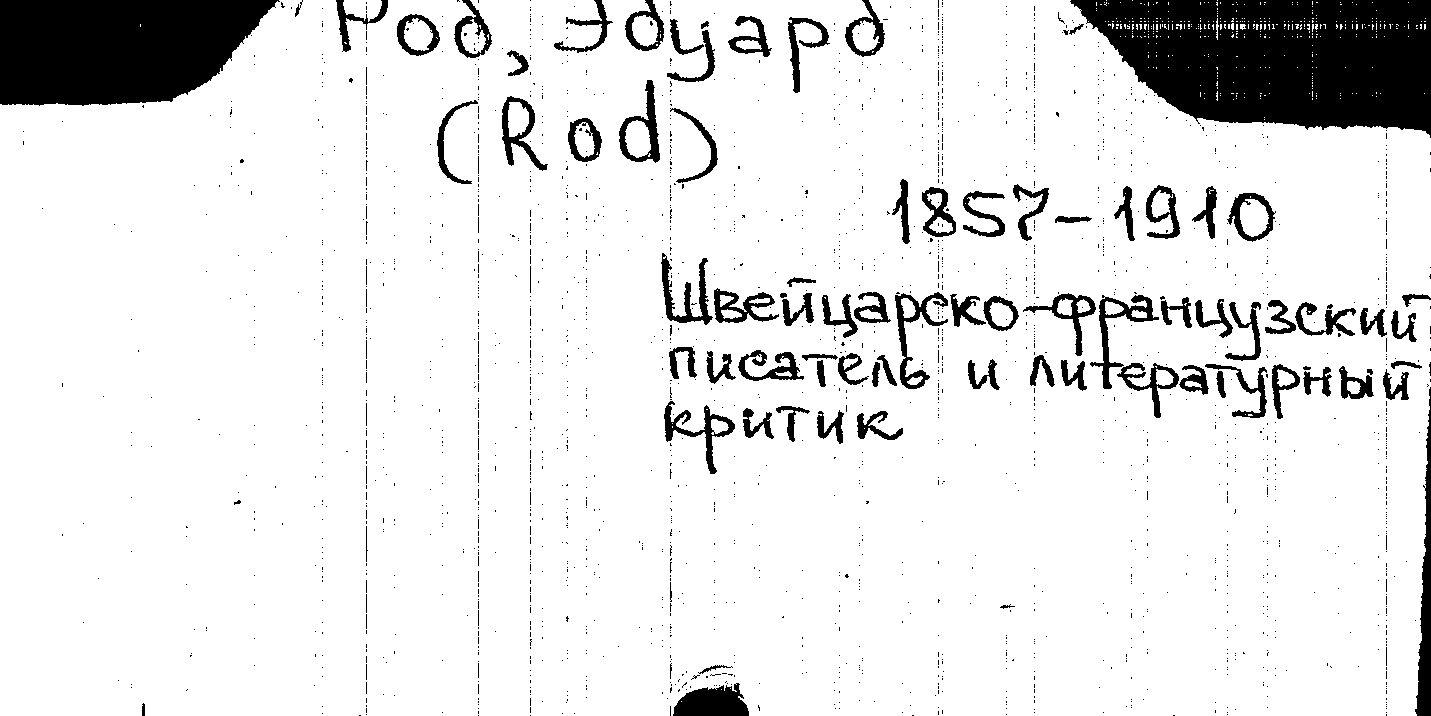 Род, Эдуард
(Rod)
1857-1910
Швейцарско-французский
писатель и литературный
критик